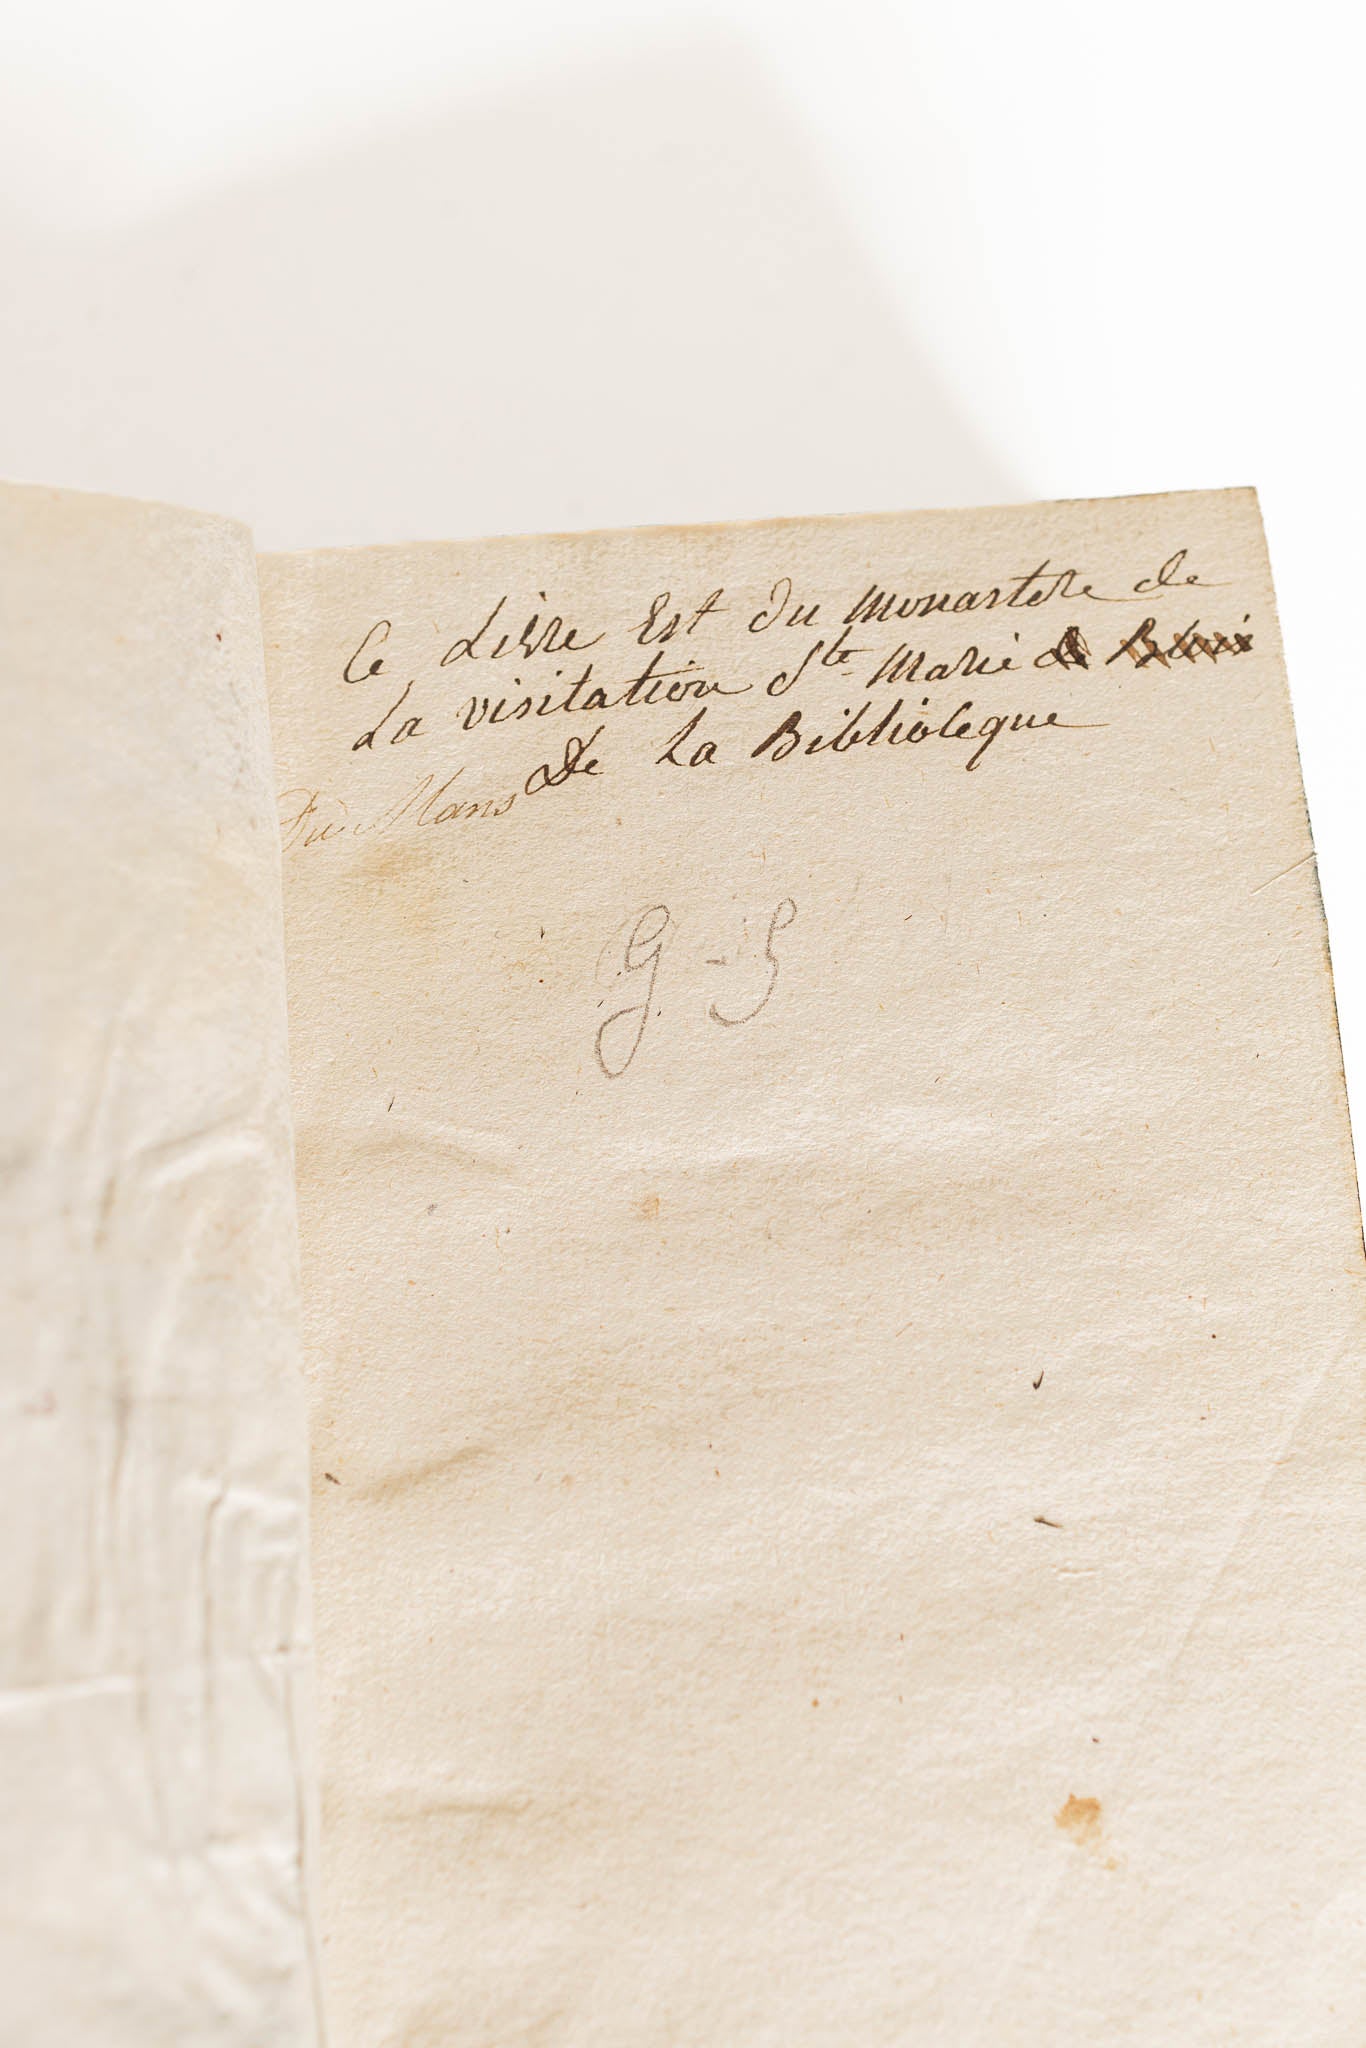 Ce Livre Est Du Monastere de
La visitation Ste Marie de Blois
De La Biblioteque
Du Mans
G - S